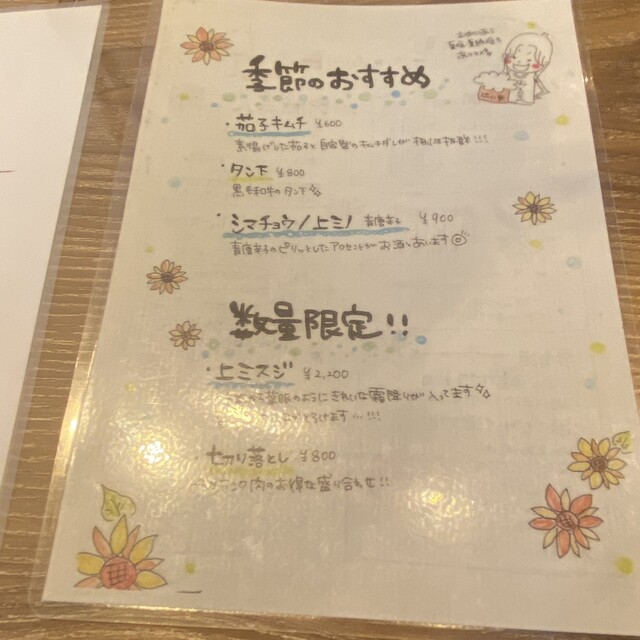 季節のおすすめ
・茄子キムチ ¥600
素揚げした茄子と自家製のキムチダレが相性抜群!!!
・タン下 ¥800
黒毛和牛のタン下
・シマチョウ/上ミノ 青唐辛子 ¥900
青唐辛子のピリッとしたアクセントがお酒にあいます
数量限定!!
・上ミスジ ¥2,200
葉脈のようにきれいな霜降りが入ってます
とろけます…!!!
・切り落とし ¥800
肉のお得な盛り合わせ!!